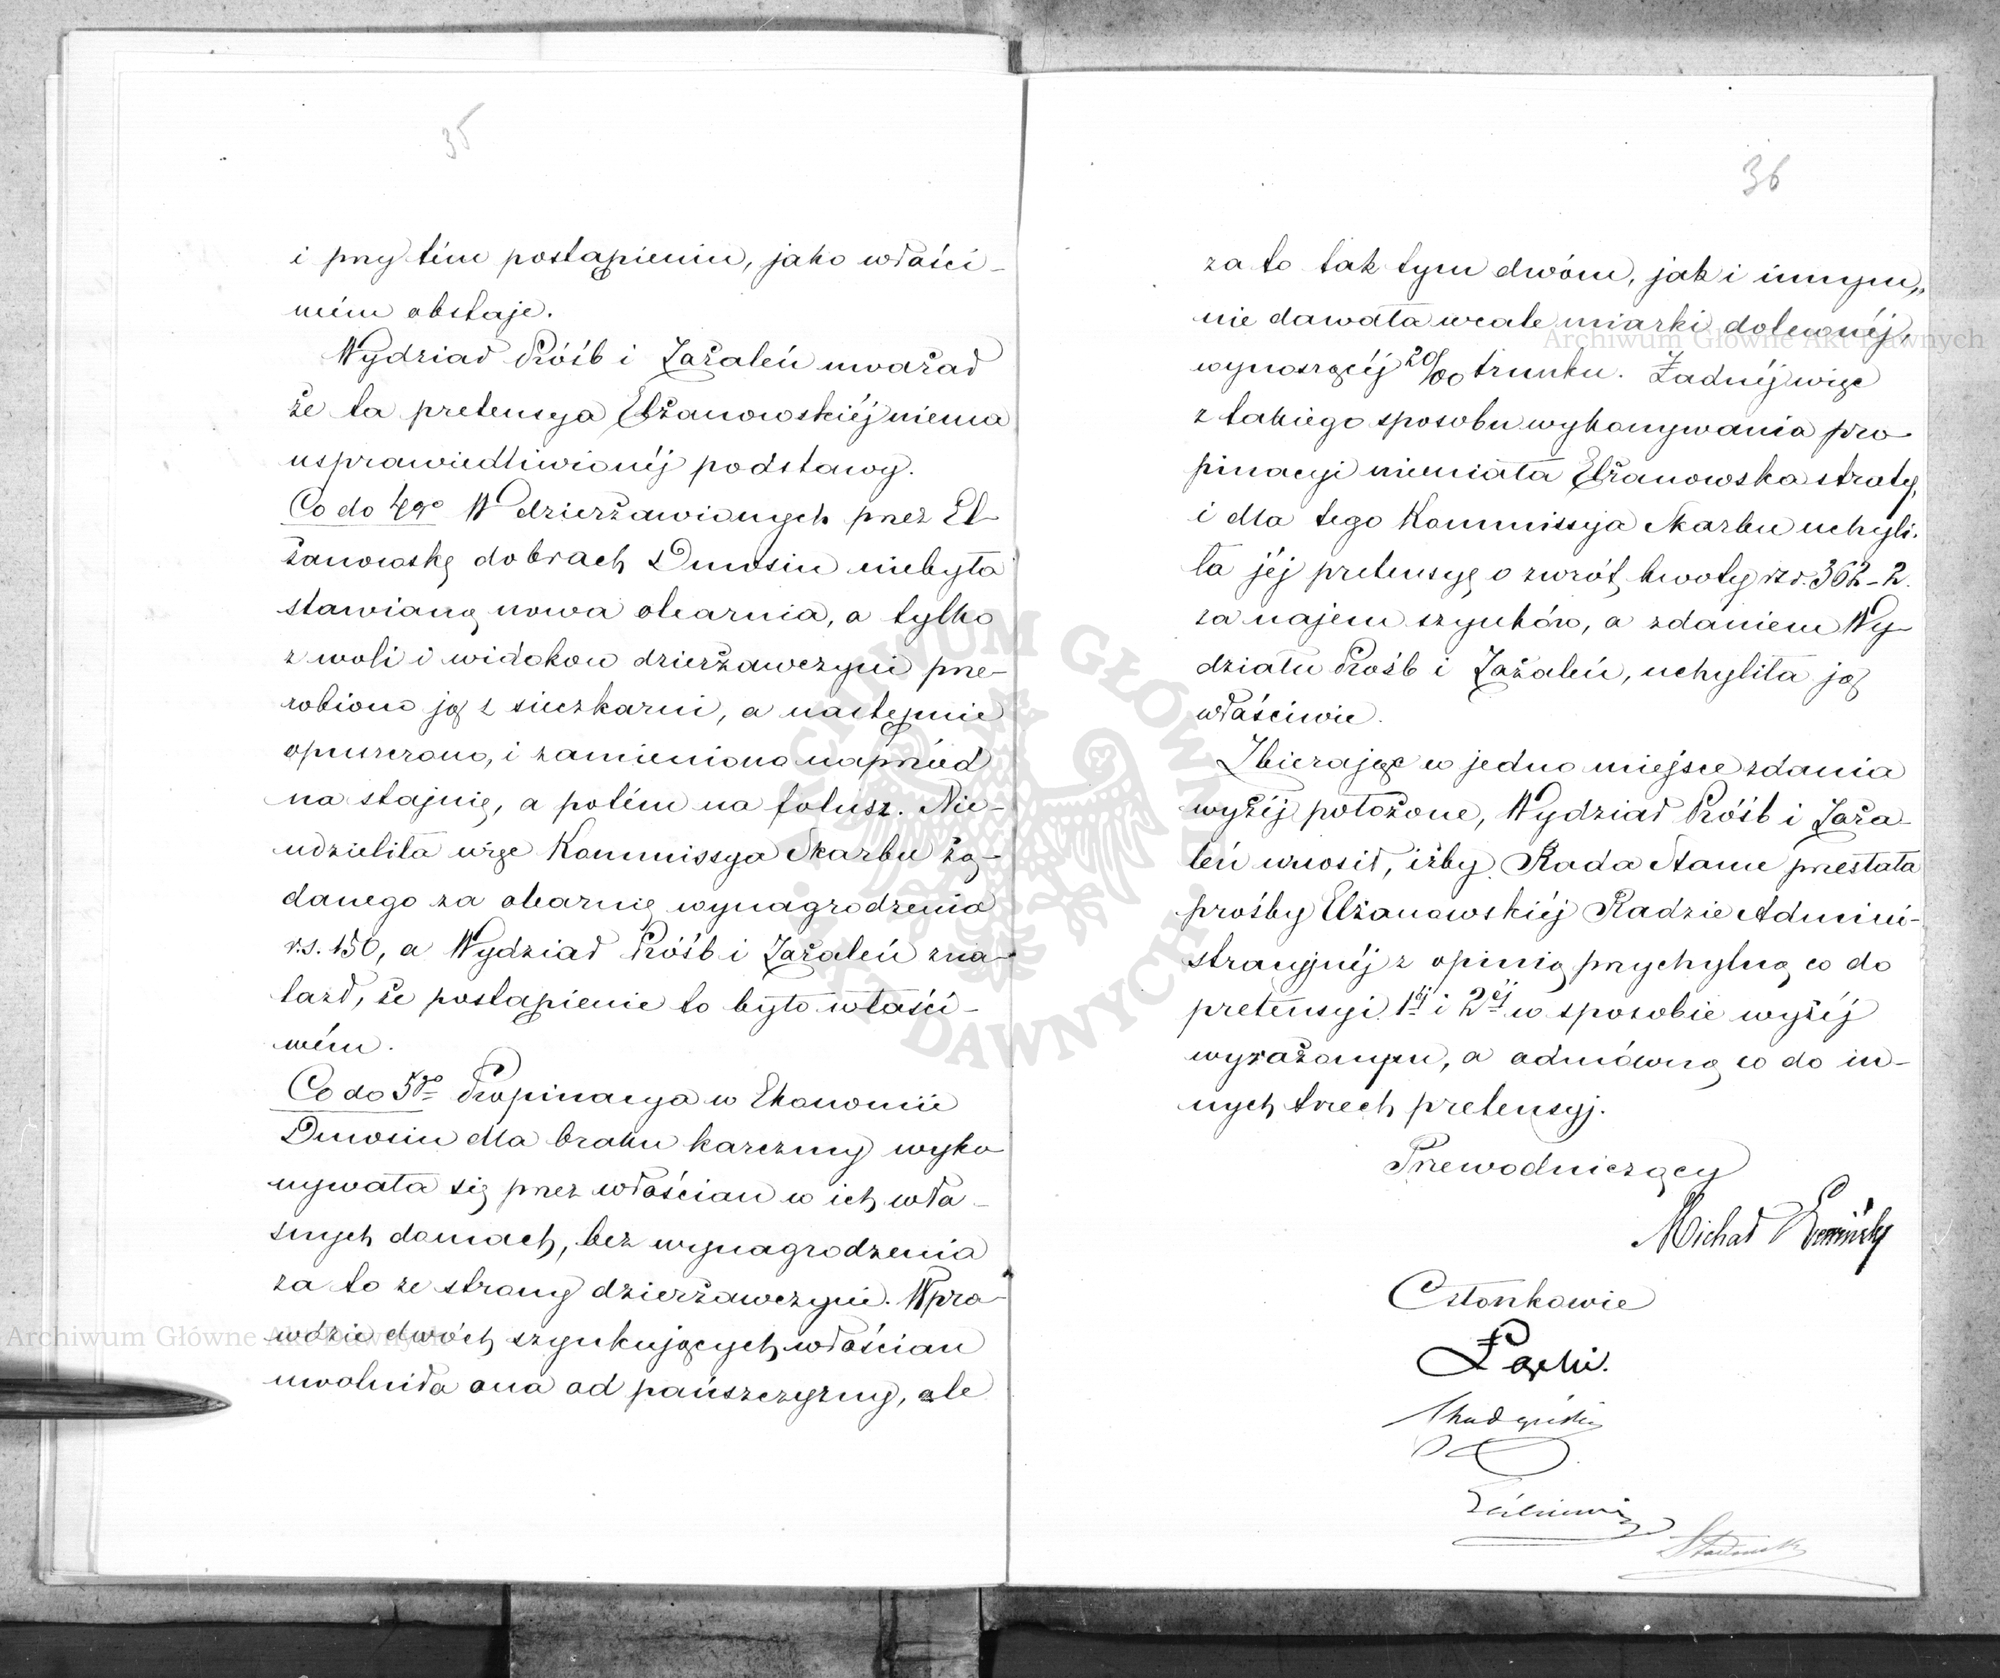 35
i przytém postąpieniu, jako właści-
wém obstaje.
Wydział Próśb i Zażaleń uważał
że ta pretensya Elżanowskiéj niema
usprawiedliwionéj podstawy.
Co do 4go W dzierżawionych przez El-
żanowskę dobrach Dmosin niebyła
stawianą nowa obarnia, a tylko
z woli i widoków dzierżawczyni prze-
robiono ją z sieczkarni, a następnie
opuszczono, i zamieniono naprzód
na stajnię, a potém na folusz. Nie-
udzieliła więc Kommissya Skarbu żą-
danego za obarnię wynagrodzenia
r.s. 150, a Wydział Próśb i Zażaleń zna-
lazł, że postąpienie to było właści-
wém.
Co do 5go Propinacya w Ekonomii
Dmosin dla braku karczmy wyko
nywała się przez włościan w ich wła-
snych domach, bez wynagrodzenia
za to ze strony dzierżawczyni. Wpra-
wdzie dwóch szynkujących włościan
uwolniła ona od pańszczyzny, ale
36
za to tak tym dwóm, jak i innym,
nie dawała wcale miarki dolewnéj,
wynoszącéj 20/00 trunku. Żadnéj więc
z takiego sposobu wykonywania pro-
pinacyi niemiała Elżanowska straty,
i dla tego Kommissyja Skarbu uchyli-
ła jéj pretensyę o zwrót kwoty rs. 362-2.
za najem szynków, a zdaniem Wy-
działu Próśb i Zażaleń, uchyliła ją
właściwie.
Zbierając w jedno miejsce zdania
wyżéj położone, Wydział Próśb i Zaża-
leń wnosił, iżby Rada Stanu przestała
prośby Elżanowskiéj Radzie Admini-
stracyjnéj z opinią przychylną co do
pretensyi 1éj i 2éj w sposobie wyżéj
wyrażonym, a odmówną co do in-
nych trzech pretensyj.
Przewodniczący
Michał
Członkowie
Łącki.
Archiwum Główne Akt Dawnych
Archiwum Główne Akt Dawnych
ARCHIWUM GŁÓWNE AKT DAWNYCH